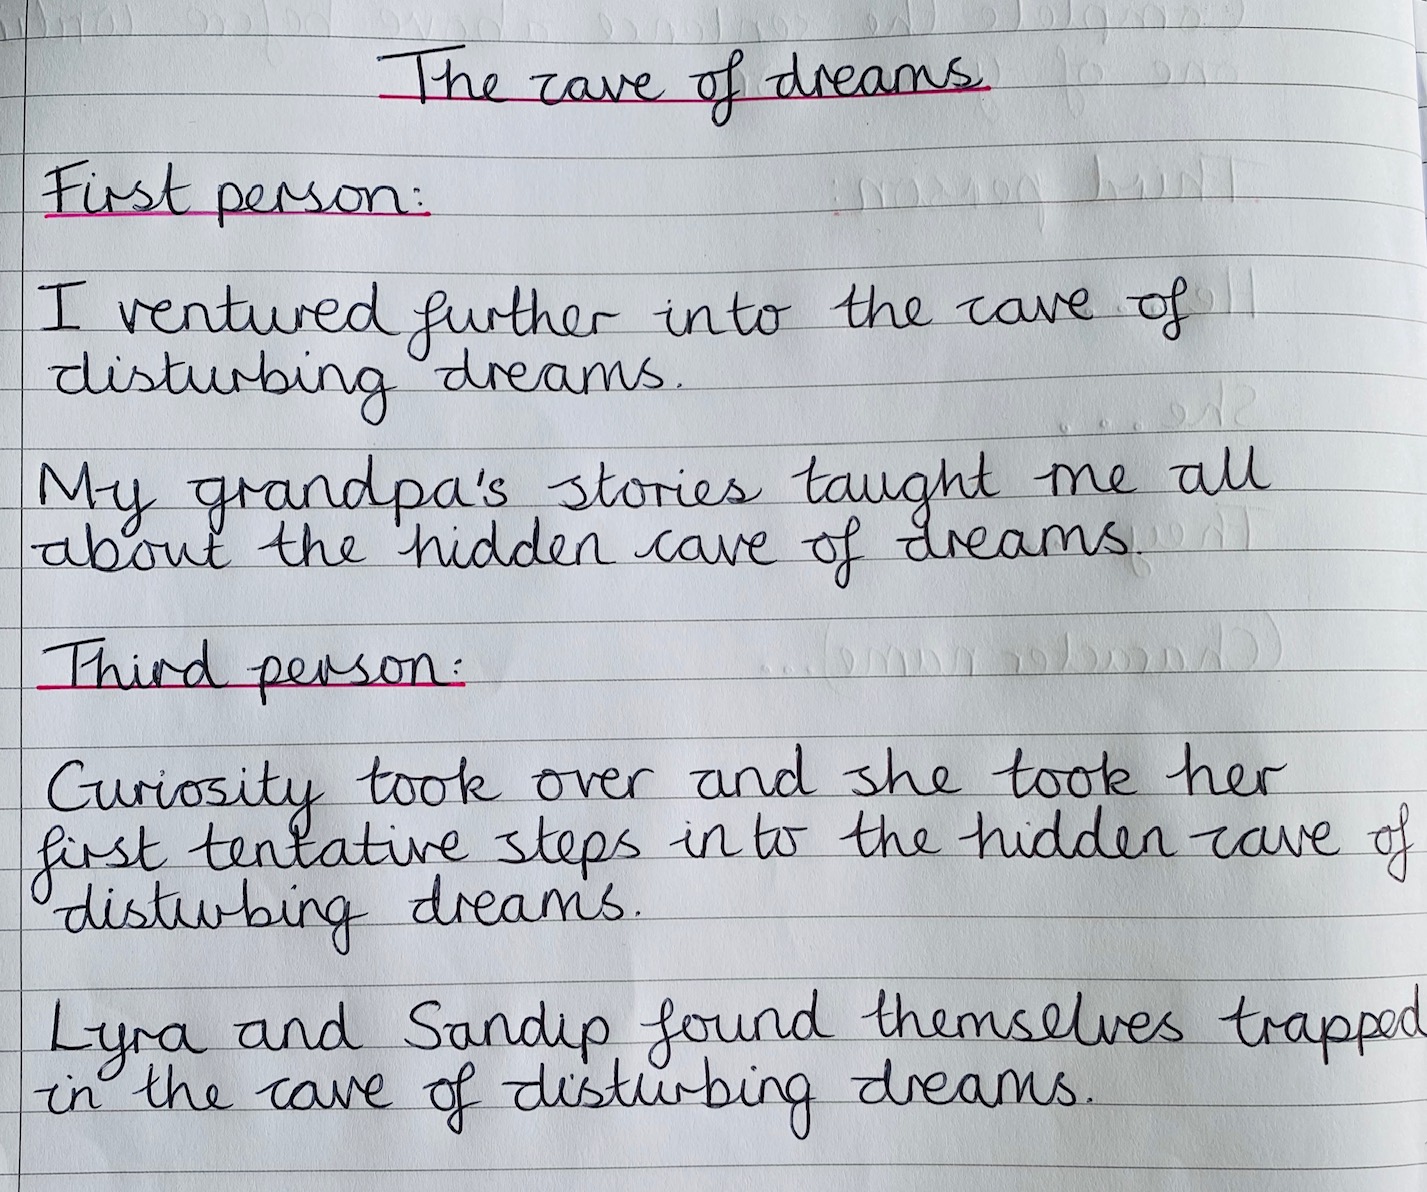 The cave of dreams
First person:
I ventured further into the cave of
disturbing dreams.
My grandpa's stories taught me all
about the hidden cave of dreams.
Third person:
Curiosity took over and she took her
first tentative steps into the hidden cave of
disturbing dreams.
Lyra and Sandip found themselves trapped
in the cave of disturbing dreams.